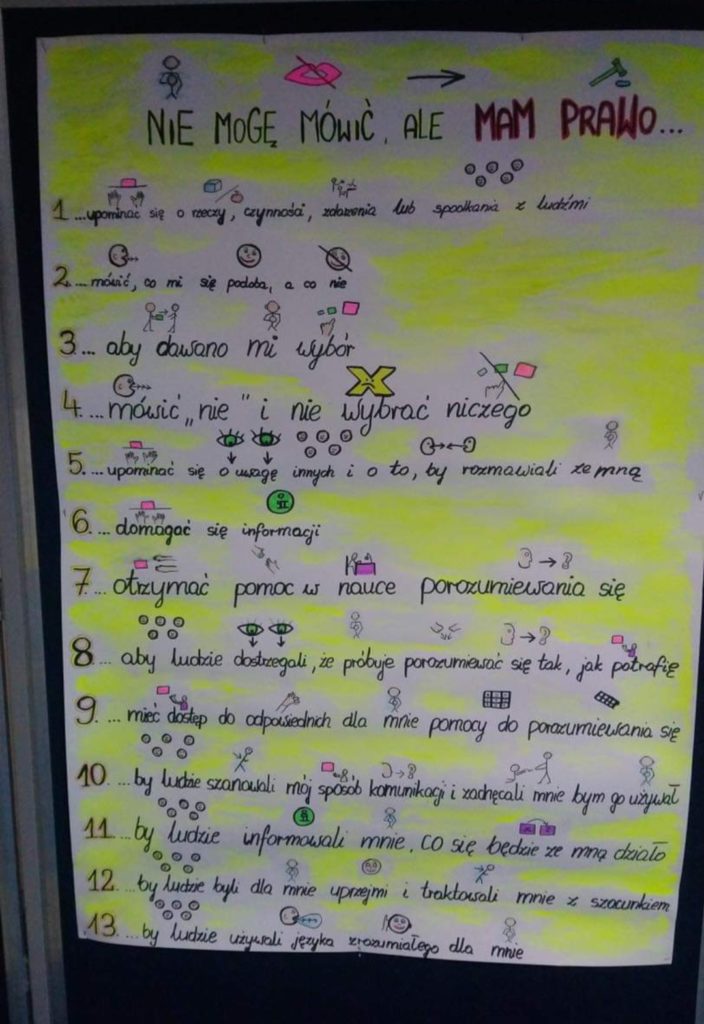 NIE MOGĘ MÓWIĆ, ALE MAM PRAWO...
1 ...upominać się o rzeczy, czynności, zdarzenia lub spootkania z ludźmi
2. ... mówić, co mi się podoba, a co nie
3. ... aby dawano mi wybór
4. ... mówić „nie" i nie wybrać niczego
5. ... upominać się o uwagę innych i o to, by rozmawiali ze mną
6. ... domagać się informacji
7. ... otrzymać pomoc w nauce porozumiewania się
8. ... aby ludzie dostrzegali, że próbuje porozumiewać się tak, jak potrafię
9. ... mieć dostęp do odpowiednich dla mnie pomocy do porozumiewania się
10. ...by ludzie szanowali mój sposób komunikacji i zachęcali mnie bym go używał
11. ...by ludzie informowali mnie, co się będzie ze mną działo
12. ...by ludzie byli dla mnie uprzejmi i traktowali mnie z szacunkiem
13. ...by ludzie używali języka zrozumiałego dla mnie